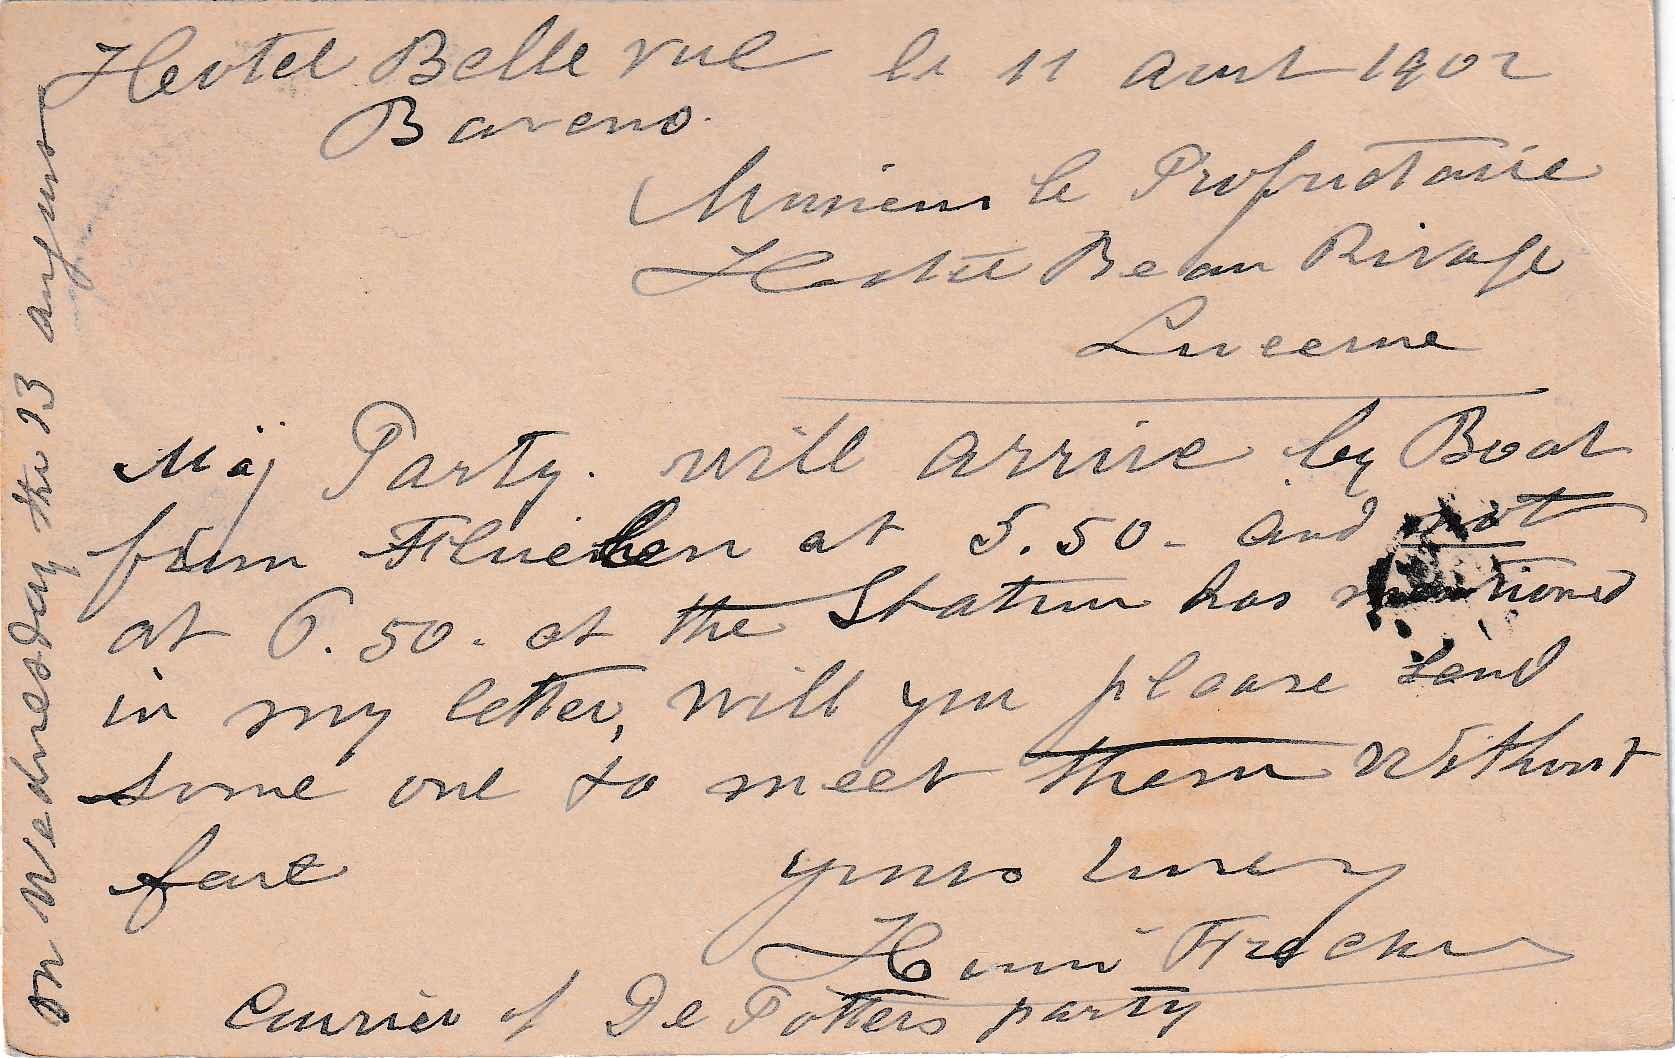 Hotel Belle vue le 11 aout 1902
Baveno.
Monsieur le Proprietaire
Hotel Beau Rivage
Lucerne
My Party. will arrive by Boat
from Fluelen at 5.50 - and not
at 6.50. at the Station has mentioned
in my letter, will you please send
some one to meet them Without
faile
yours truly
Henri
Courrier of De Potters party
on Wednesday the 13